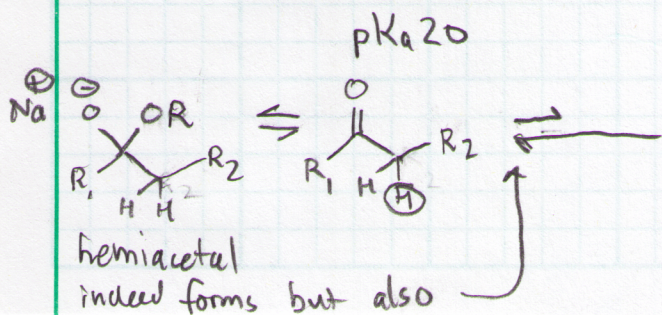 pKa 20
Na ⊕ ⊖
O OR O
R₁ R₂ R₁ R₂
H H H H
hemiacetal
indeed forms but also